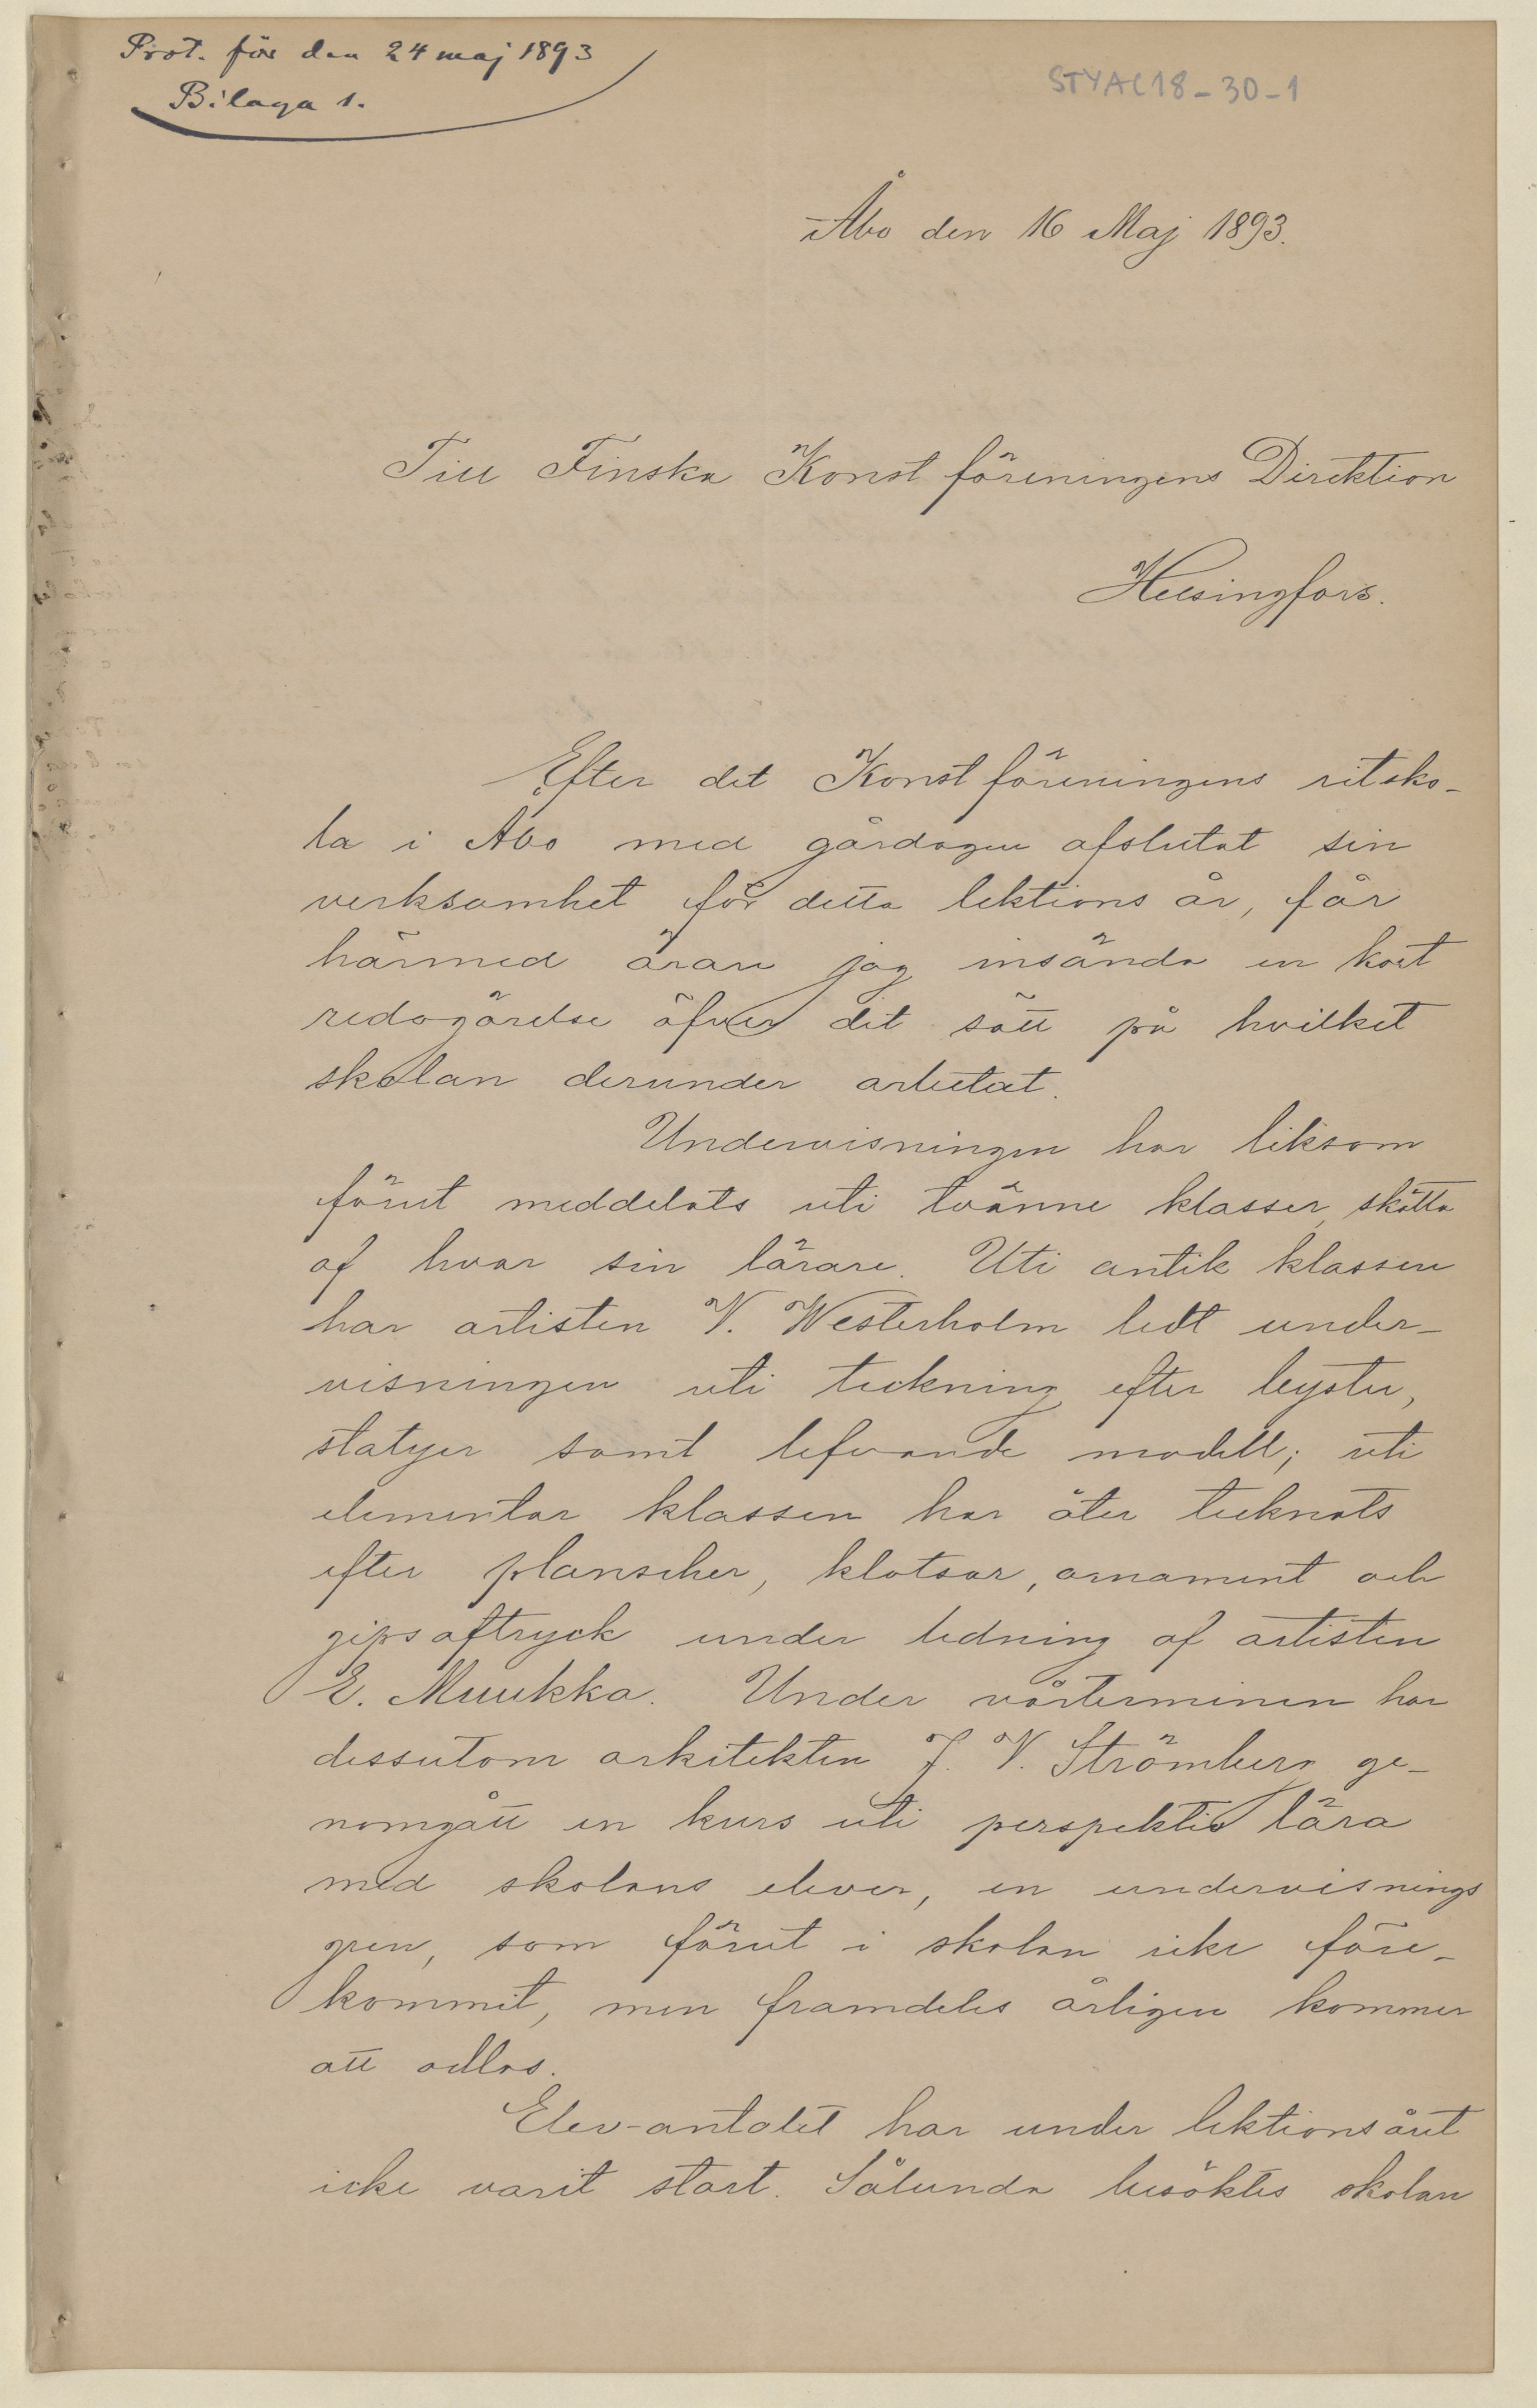 Prot. för den 24 maj 1893
Bilaga 1.
STYAC18-30-1
Åbo den 16 Maj 1893.
Till Finska Konstföreningens Direktion
Helsingfors.
Efter det Konstföreningens ritsko-
la i Åbo med gårdagen afslutat sin
verksamhet för detta lektions år, får
härmed äran jag insända en kort
redogörelse öfver det sätt på hvilket
skolan derunder arbetat.
Undervisningen har liksom
förut meddelats uti tvänne klasser, skötta
af hvar sin lärare. Uti antik klassen
har artisten V. Westerholm ledt under-
visningen uti teckning efter byster,
statyer samt lefvande modell; uti
elementar klassen har åter tecknats
efter planscher, klotsar, ornament och
gipsaftryck under ledning af artisten
E. Muukka. Under vårterminen har
dessutom arkitekten J. V. Strömberg ge-
nomgått en kurs uti perspektiv lära
med skolans elever, en undervisnings
gren, som förut i skolan icke före-
kommit, men framdeles årligen kommer
att odlas.
Elev-antalet har under lektionsåret
icke varit stort. Sålunda besöktes skolan